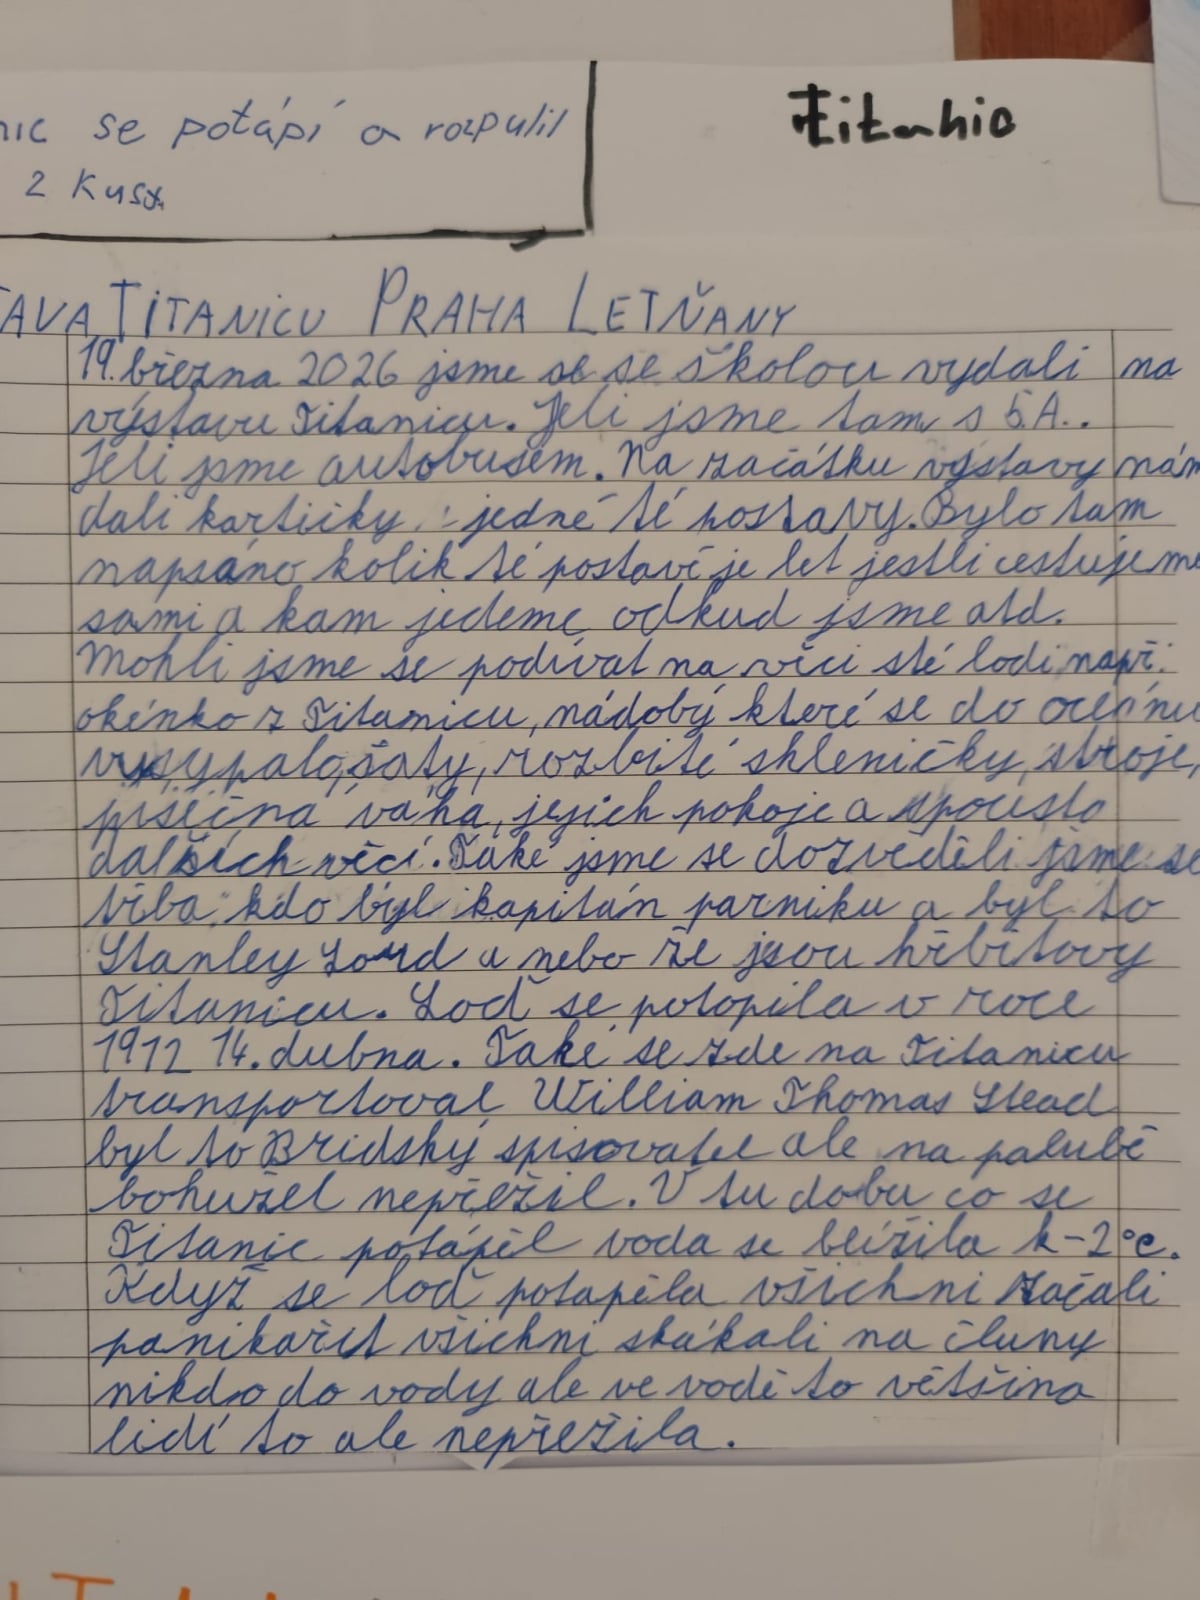 se potápí a rozpulil
2 kusy
Titanic
TAVA TITANICU PRAHA LETŇANY
19. března 2026 jsme se se školou vydali na
výstavu Titanicu. Jeli jsme tam s 5.A..
Jeli jsme autobusem. Na začátku výstavy nám
dali kartičky jedné té postavy. Bylo tam
napsáno kolik té postavě je let jestli cestujeme
sami a kam jedeme odkud jsme atd.
Mohli jsme se podívat na věci sté lodi např.
okénko z Titanicu, nádoby které se do oceánu
vysypalo, šaty, rozbité skleničky, stroje,
písečná váha, jejich pokoje a spousto
dalších věcí. Také jsme se dozvěděli jsme se
třba kdo byl kapitán parniku a byl to
Stanley Lord a nebo že jsou hřbitovy
Titanicu. Loď se potopila v roce
1912 14. dubna. Také se zde na Titanicu
transportoval William Thomas Stead
byl to Bridský spisovatel ale na palubě
bohužel nepřežil. V tu dobu co se
Titanic potápěl voda se blížila k -2°C.
Když se loď potapěla všichni začali
panikařit všichni skákali na čluny
nikdo do vody ale ve vodě to většina
lidí to ale nepřežila.